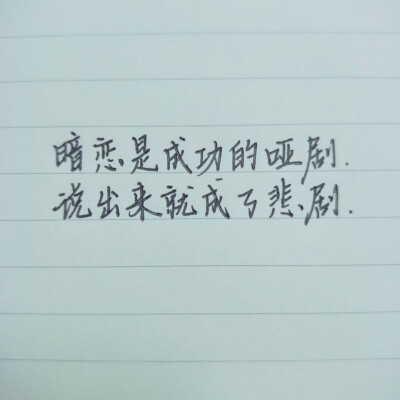 暗恋是成功的哑剧.
说出来就成了悲剧.